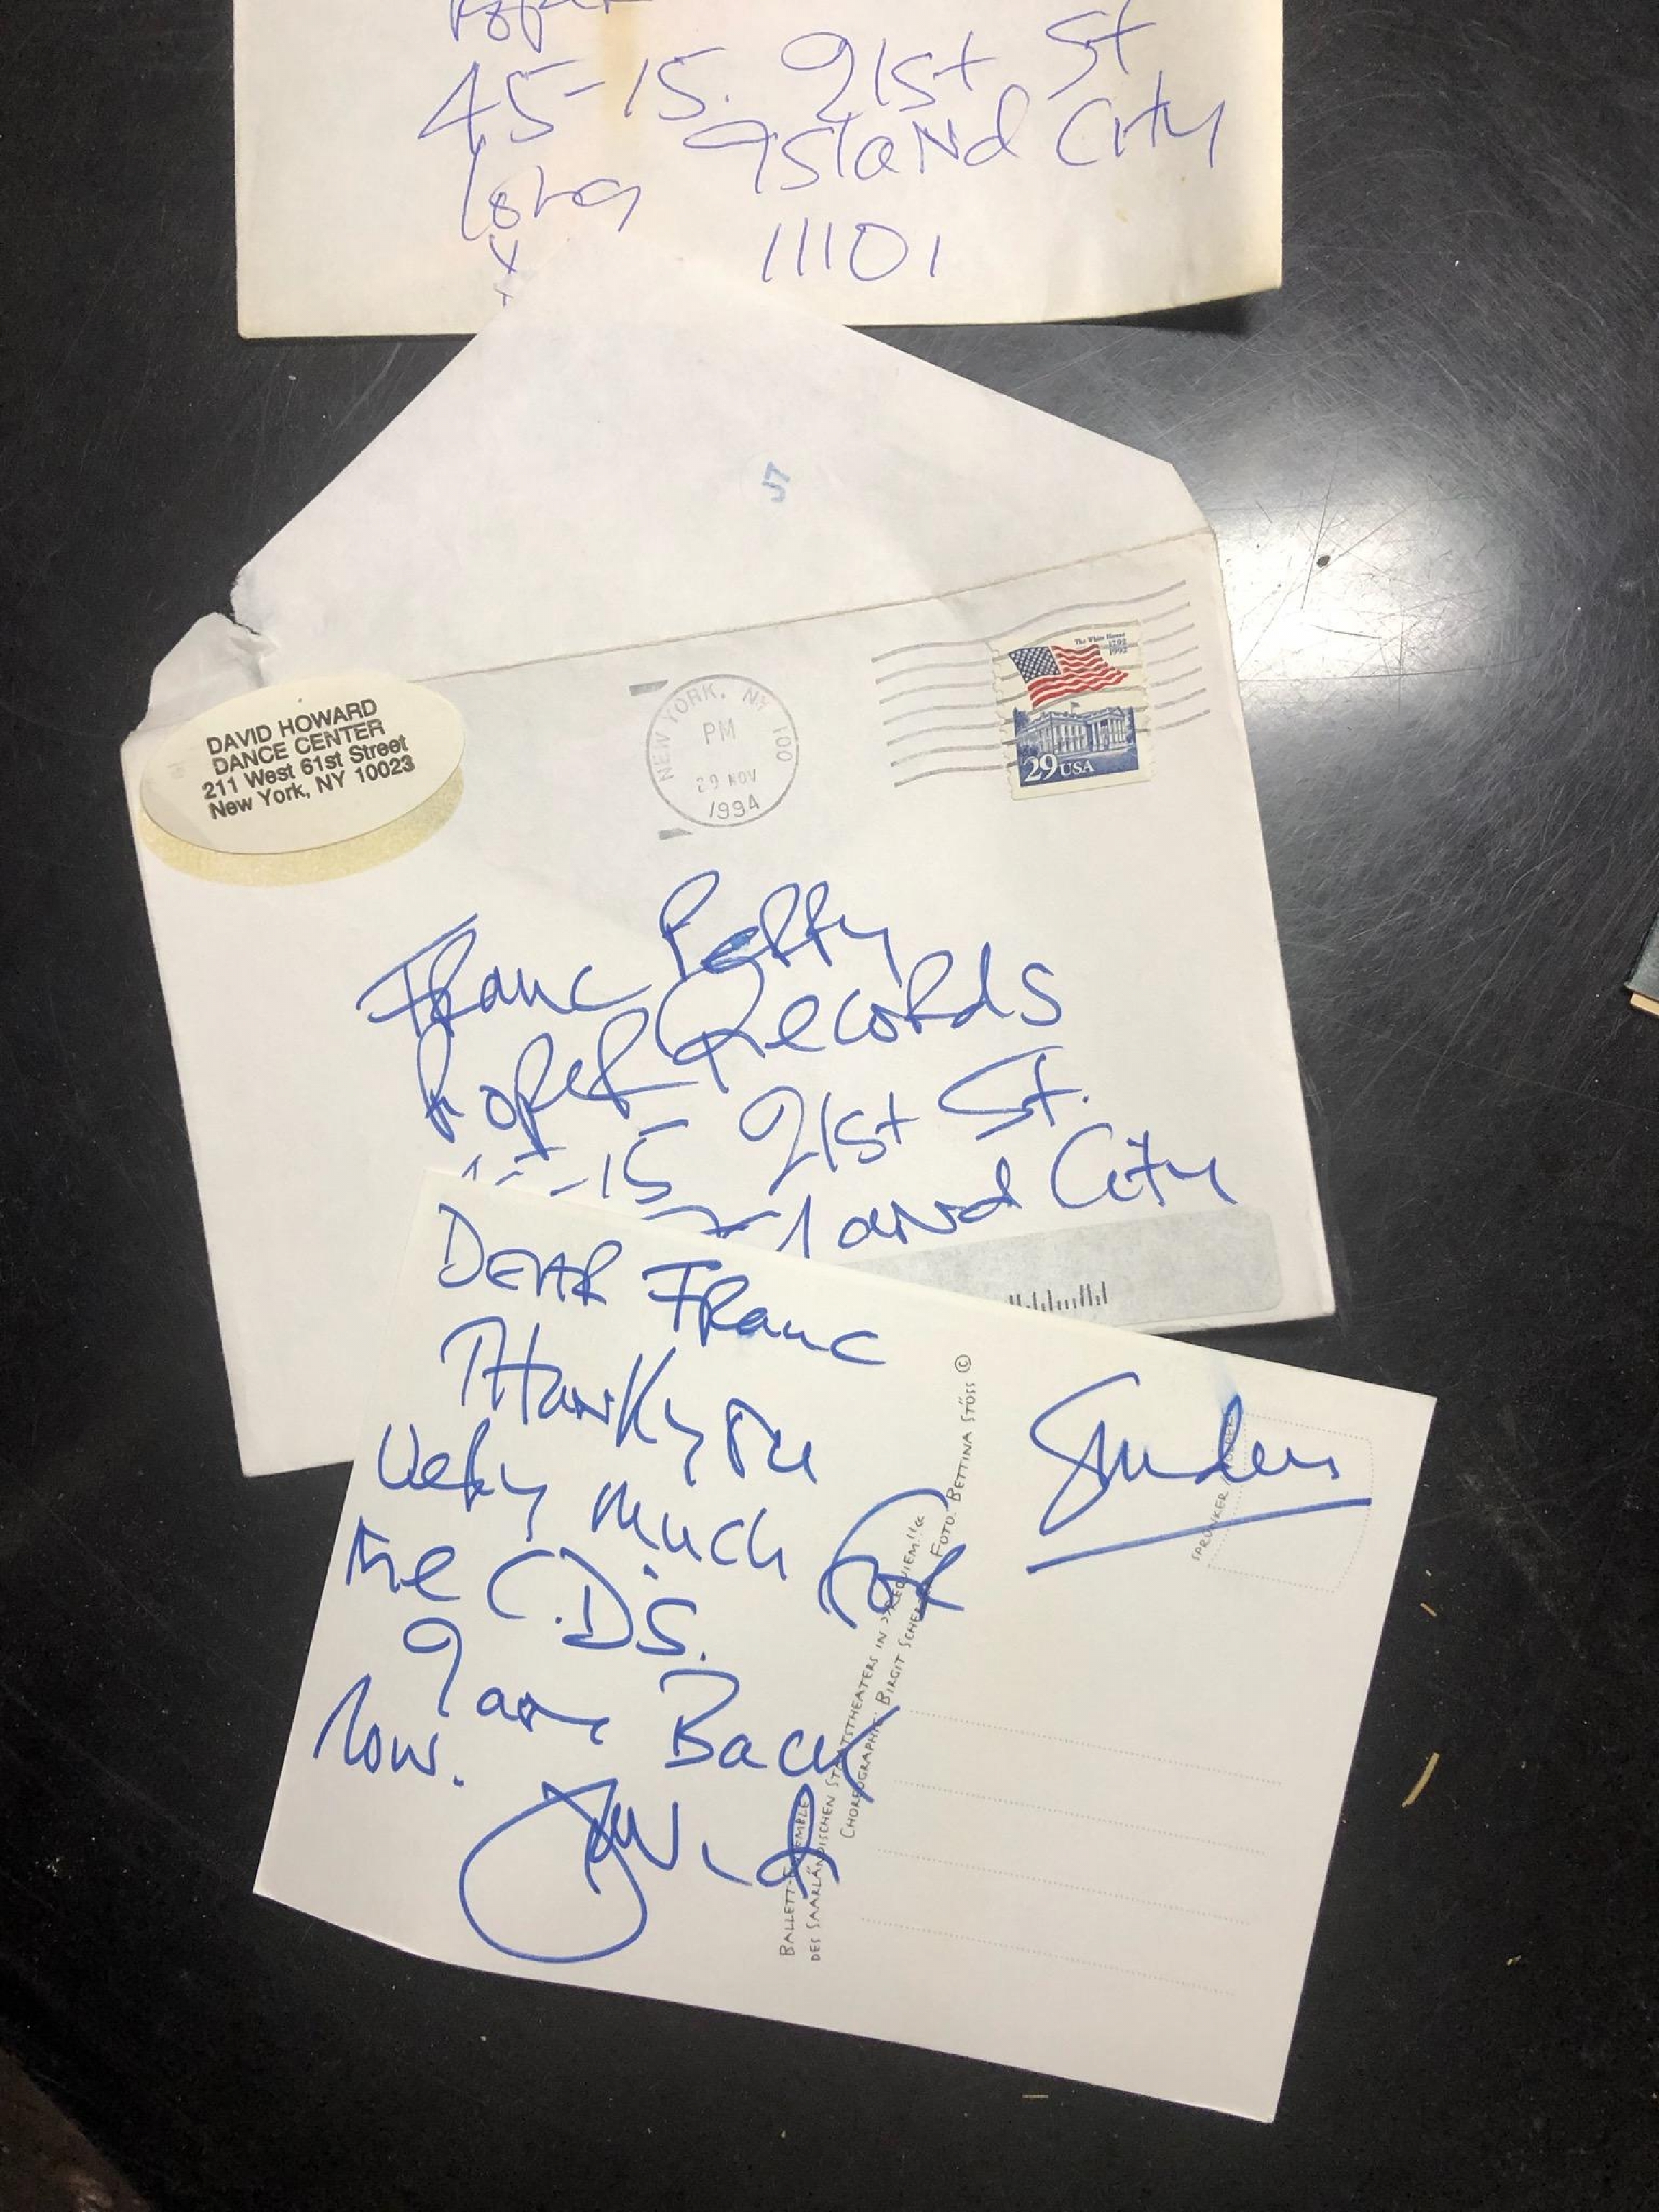 45-15. 21st St
Long Island City
11101
J7
DAVID HOWARD
DANCE CENTER
211 West 61st Street
New York, NY 10023
NEW YORK, NY 100
PM
29 NOV
1994
The White House
1792
1992
29 USA
Franc Peffy
Roper Records
-15 21st St.
Island City
DEAR Franc
Thank you
Very much for
the C.D.S.
I am Back
Now.
BALLETT-ENSEMBLE
DES SAARLÄNDISCHEN STAATSTHEATERS IN »REQUIEM!!«
CHOREOGRAPHIE: BIRGIT SCHERZER FOTO: BETTINA STÖSS ©